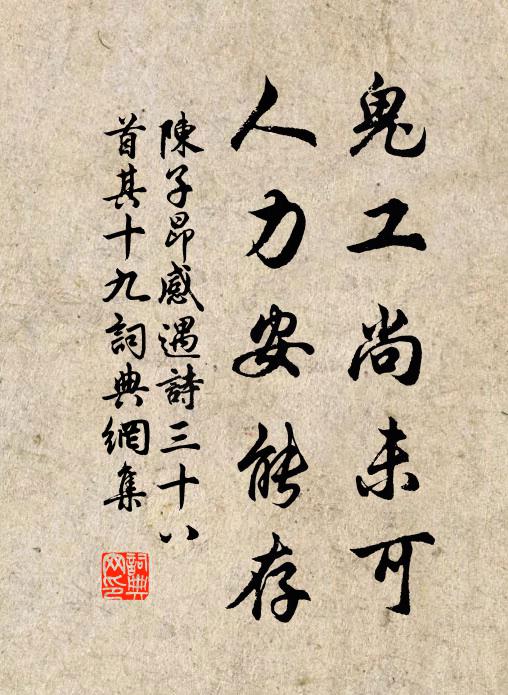 鬼工尚未可
人力安能存
陳子昂感遇詩三十八
首其十九詞典網集
詞典
网印